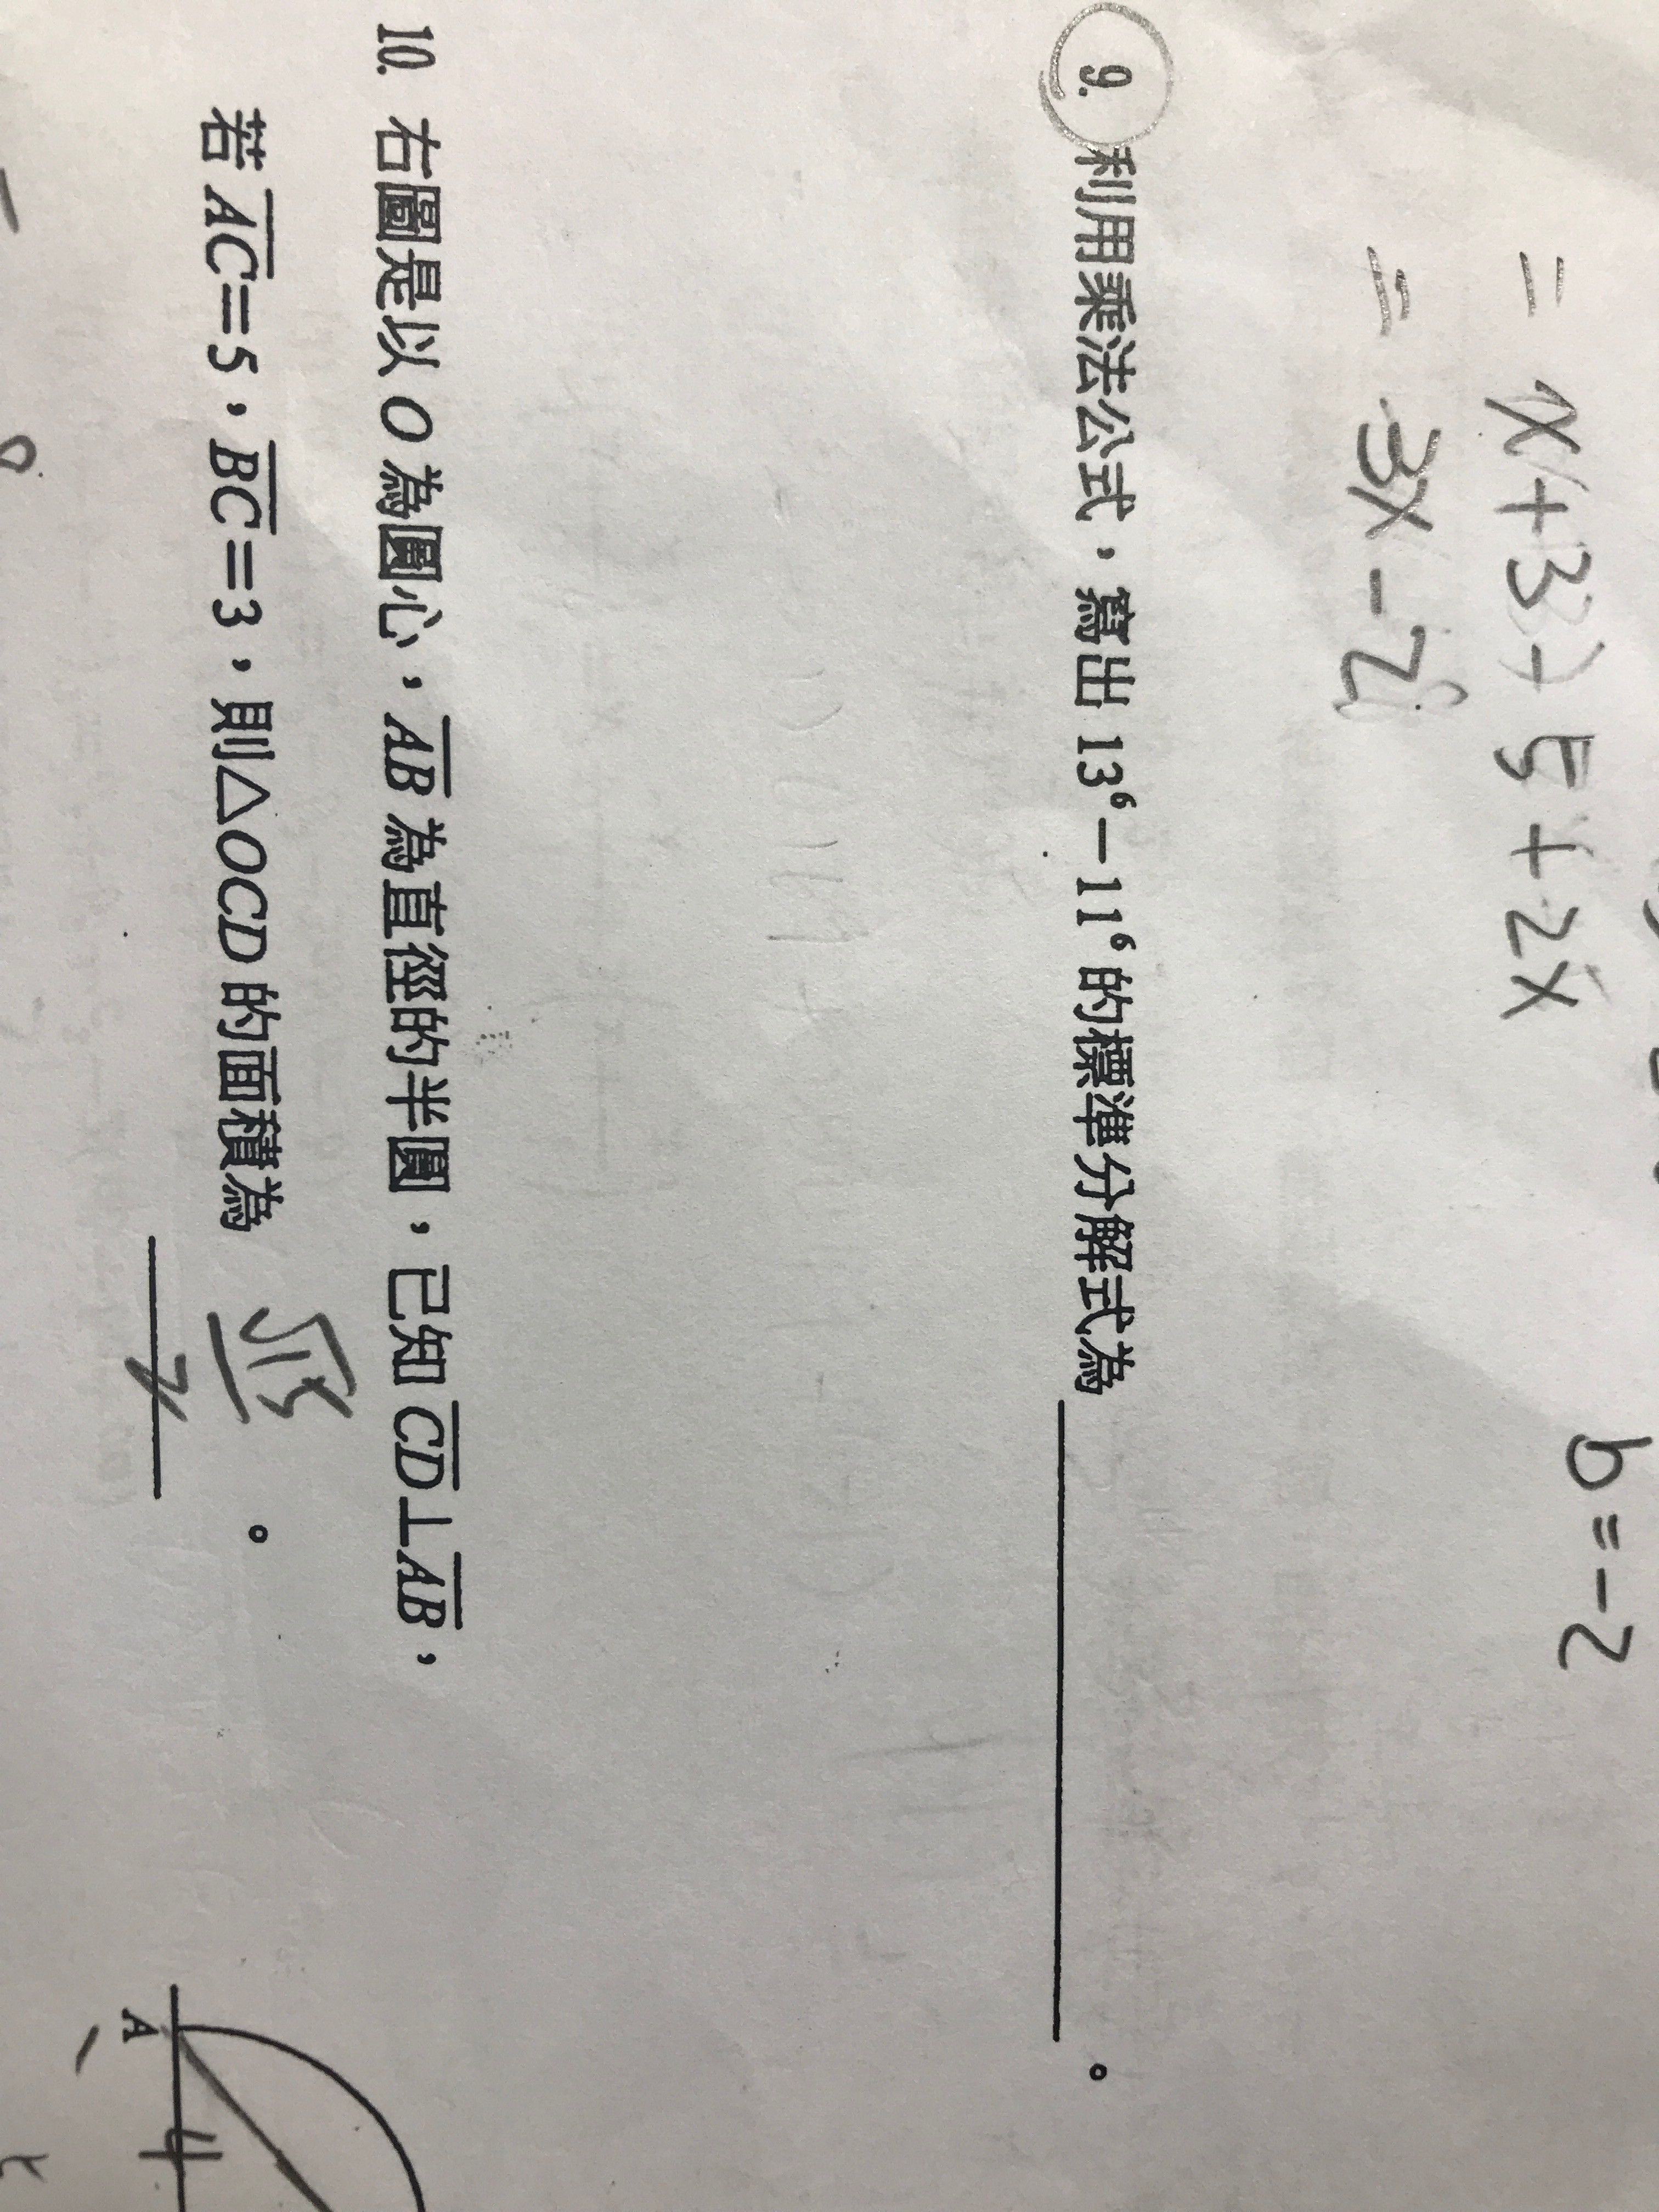 b=-2
= x+3+5+2x
= 3x-2
9. 利用乘法公式,寫出 13⁶-11⁶ 的標準分解式為 ________。
10. 右圖是以 O 為圓心,AB 為直徑的半圓,已知 CD⊥AB,
若 AC=5,BC=3,則△OCD 的面積為 √15/2 。
A
4